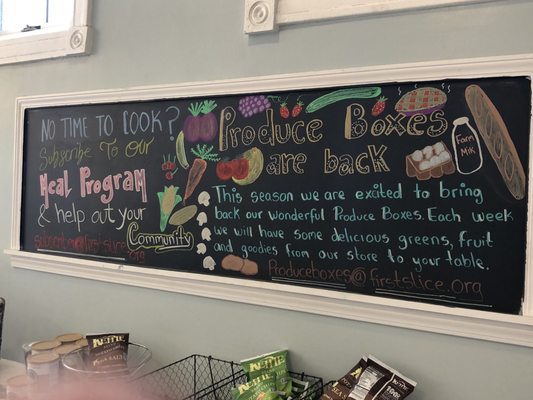 No Time To Cook?
Subscribe To Our
Meal Program
& help out your
Community
subscription@firstslice.org
Produce Boxes
are back
This season we are excited to bring
back our wonderful Produce Boxes. Each week
we will have some delicious greens, fruit
and goodies from our store to your table.
Produceboxes@firstslice.org
Farm
Milk
KETTLE
KETTLE